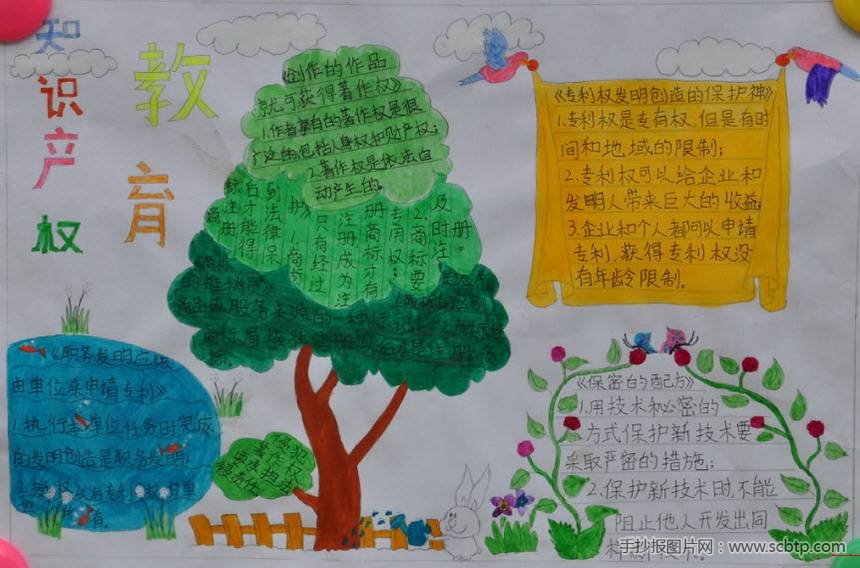 知识产权
教育
《创作的作品
就可获得著作权》
1.作者享有的著作权是很
广泛的包括人身权和财产权;
2.著作权是依法自
动产生的。
标注册
后才能得
到法律保
护》
1.商标
只有经过
注册成为注
册商标才有
专用权;
2.商标要
及时注
册。
商品或服务来源的一种标记
《专利权发明创造的保护神》
1.专利权是专有权,但是有时
间和地域的限制;
2.专利权可以给企业和
发明人带来巨大的收益;
3.企业和个人都可以申请
专利,获得专利权没
有年龄限制。
《职务发明应该
由单位来申请专利》
1.执行本单位任务时完成
的发明创造是职务发明;
侵犯
著作权
要承担法
律责任
《保密的配方》
1.用技术秘密的
方式保护新技术要
采取严密的措施;
2.保护新技术时,不能
阻止他人开发出同
手抄报图片网:www.scbtp.com